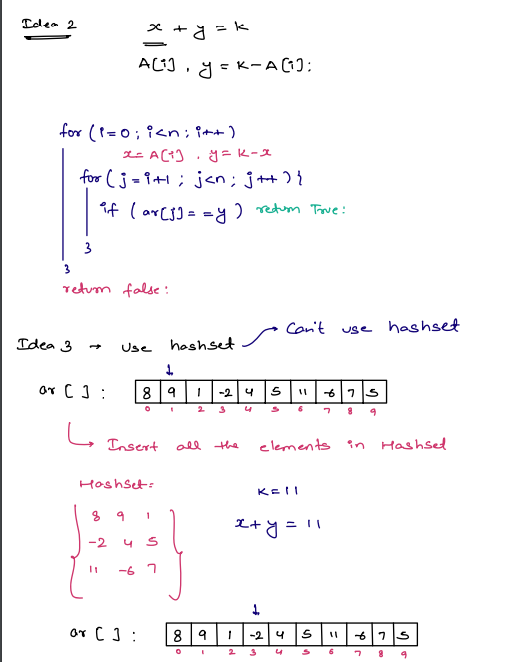 Idea 2
x + y = k
A[i] , y = K - A[i];
for (i=0; i<n; i++)
x = A[i] , y = k - x
for (j = i+1 ; j<n; j++) {
if (ar[j] = = y ) return True;
}
}
return false;
Idea 3 → Use hashset → Can't use hashset
↓
ar [ ] : 8 9 1 -2 4 5 11 -6 7 5
0 1 2 3 4 5 6 7 8 9
↳ Insert all the elements in Hashset
Hashset =
K = 11
8 9 1
x + y = 11
-2 4 5
11 -6 7
↓
ar [ ] : 8 9 1 -2 4 5 11 -6 7 5
0 1 2 3 4 5 6 7 8 9